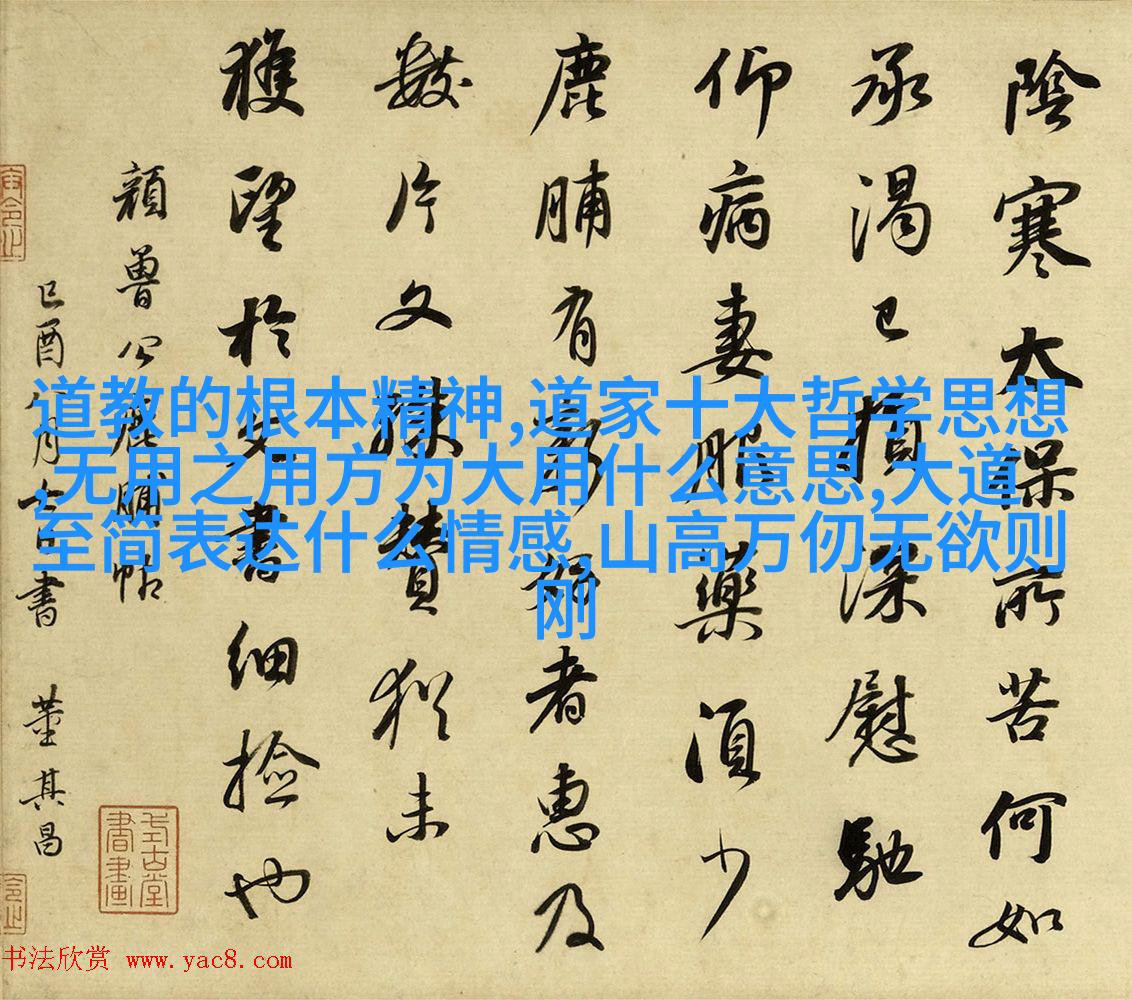 陰寒太保所苦何如
承渴已損深慰馳
仰病妻服藥須少
鹿脯有新好者惠及
數片又贊猶未
獲望於文書細撿也
顏魯公鹿脯帖
己酉八月書 董其昌
道教的根本精神,道家十大哲学思想
,无用之用方为大用什么意思,大道
至简表达什么情感,山高万仞无欲则
刚
书法欣赏 www.yac8.com